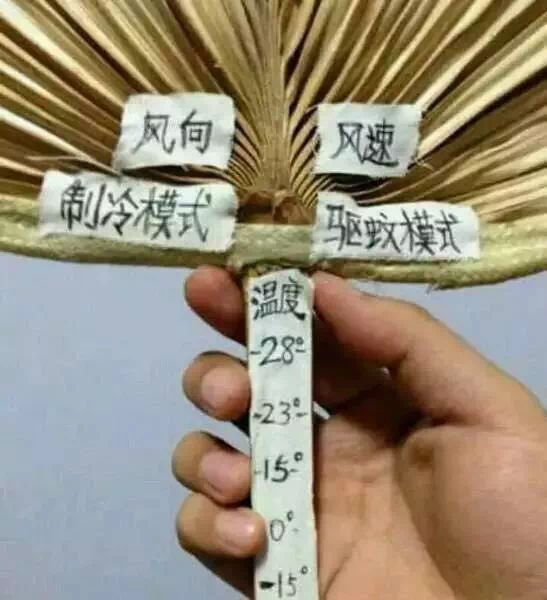 风向
风速
制冷模式
驱蚊模式
温度
-28°-
-23°-
-15°-
0°-
-15°